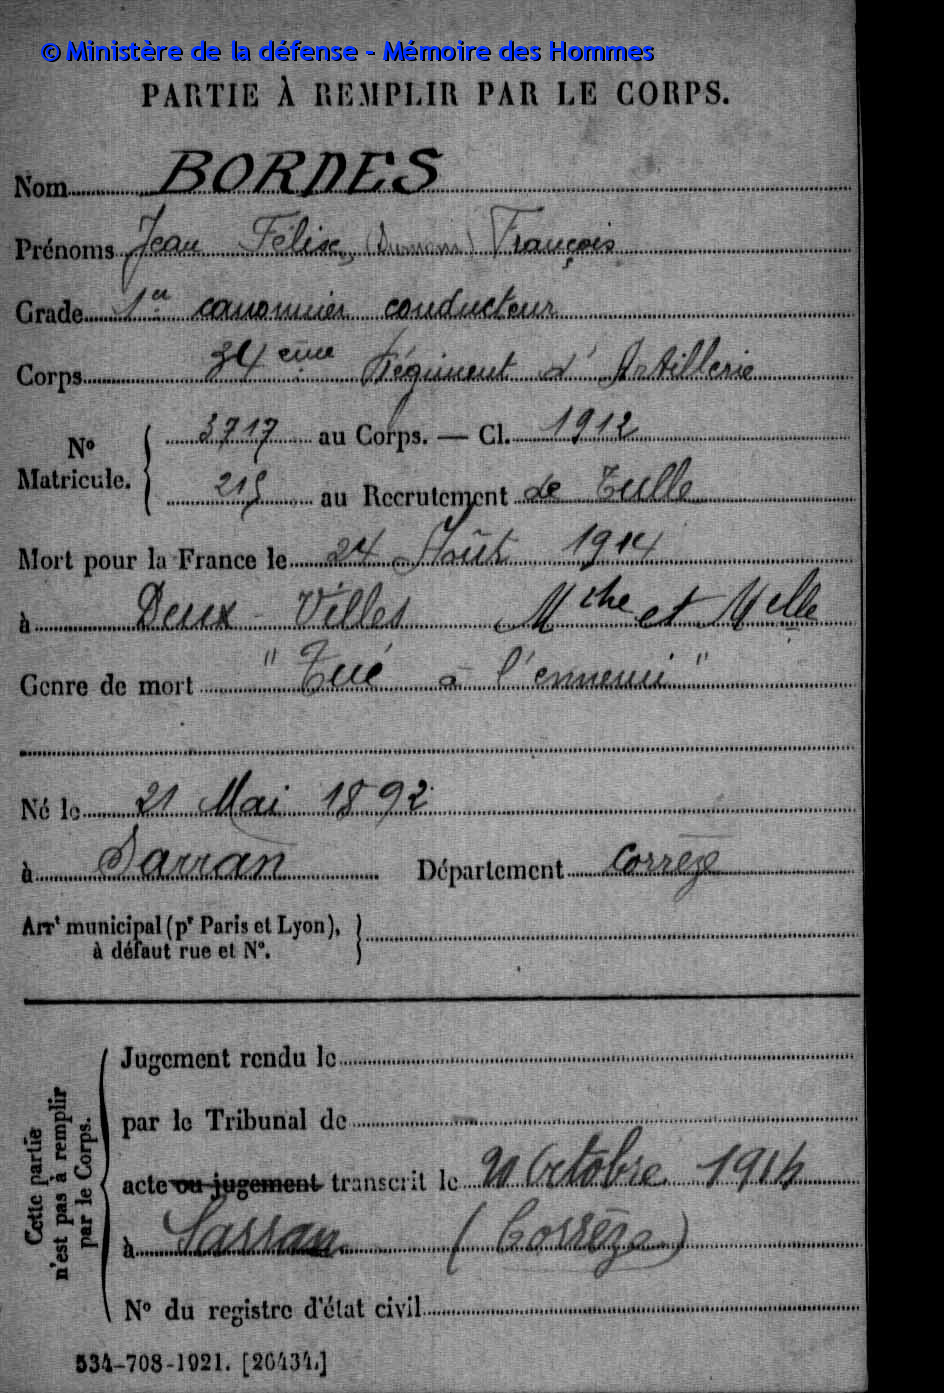 © Ministère de la défense - Mémoire des Hommes
PARTIE À REMPLIR PAR LE CORPS.
Nom BORDES
Prénoms Jean Félix, (Surnom) François
Grade 1er canonnier conducteur
Corps 34ème Régiment d'Artillerie
No Matricule. { 3717 au Corps. — Cl. 1912
215 au Recrutement de Tulle
Mort pour la France le 24 Août 1914
à Deux-Villes Mthe et Melle
Genre de mort "Tué à l'ennemi"
Né le 21 Mai 1892
à Sarran Département Corrèze
Arrt municipal (pr Paris et Lyon), à défaut rue et No. }
Cette partie n'est pas à remplir par le Corps. {
Jugement rendu le
par le Tribunal de
acte ou jugement transcrit le Octobre
à Sarran (Corrèze)
No du registre d'état civil
534-708-1921. [26434.]